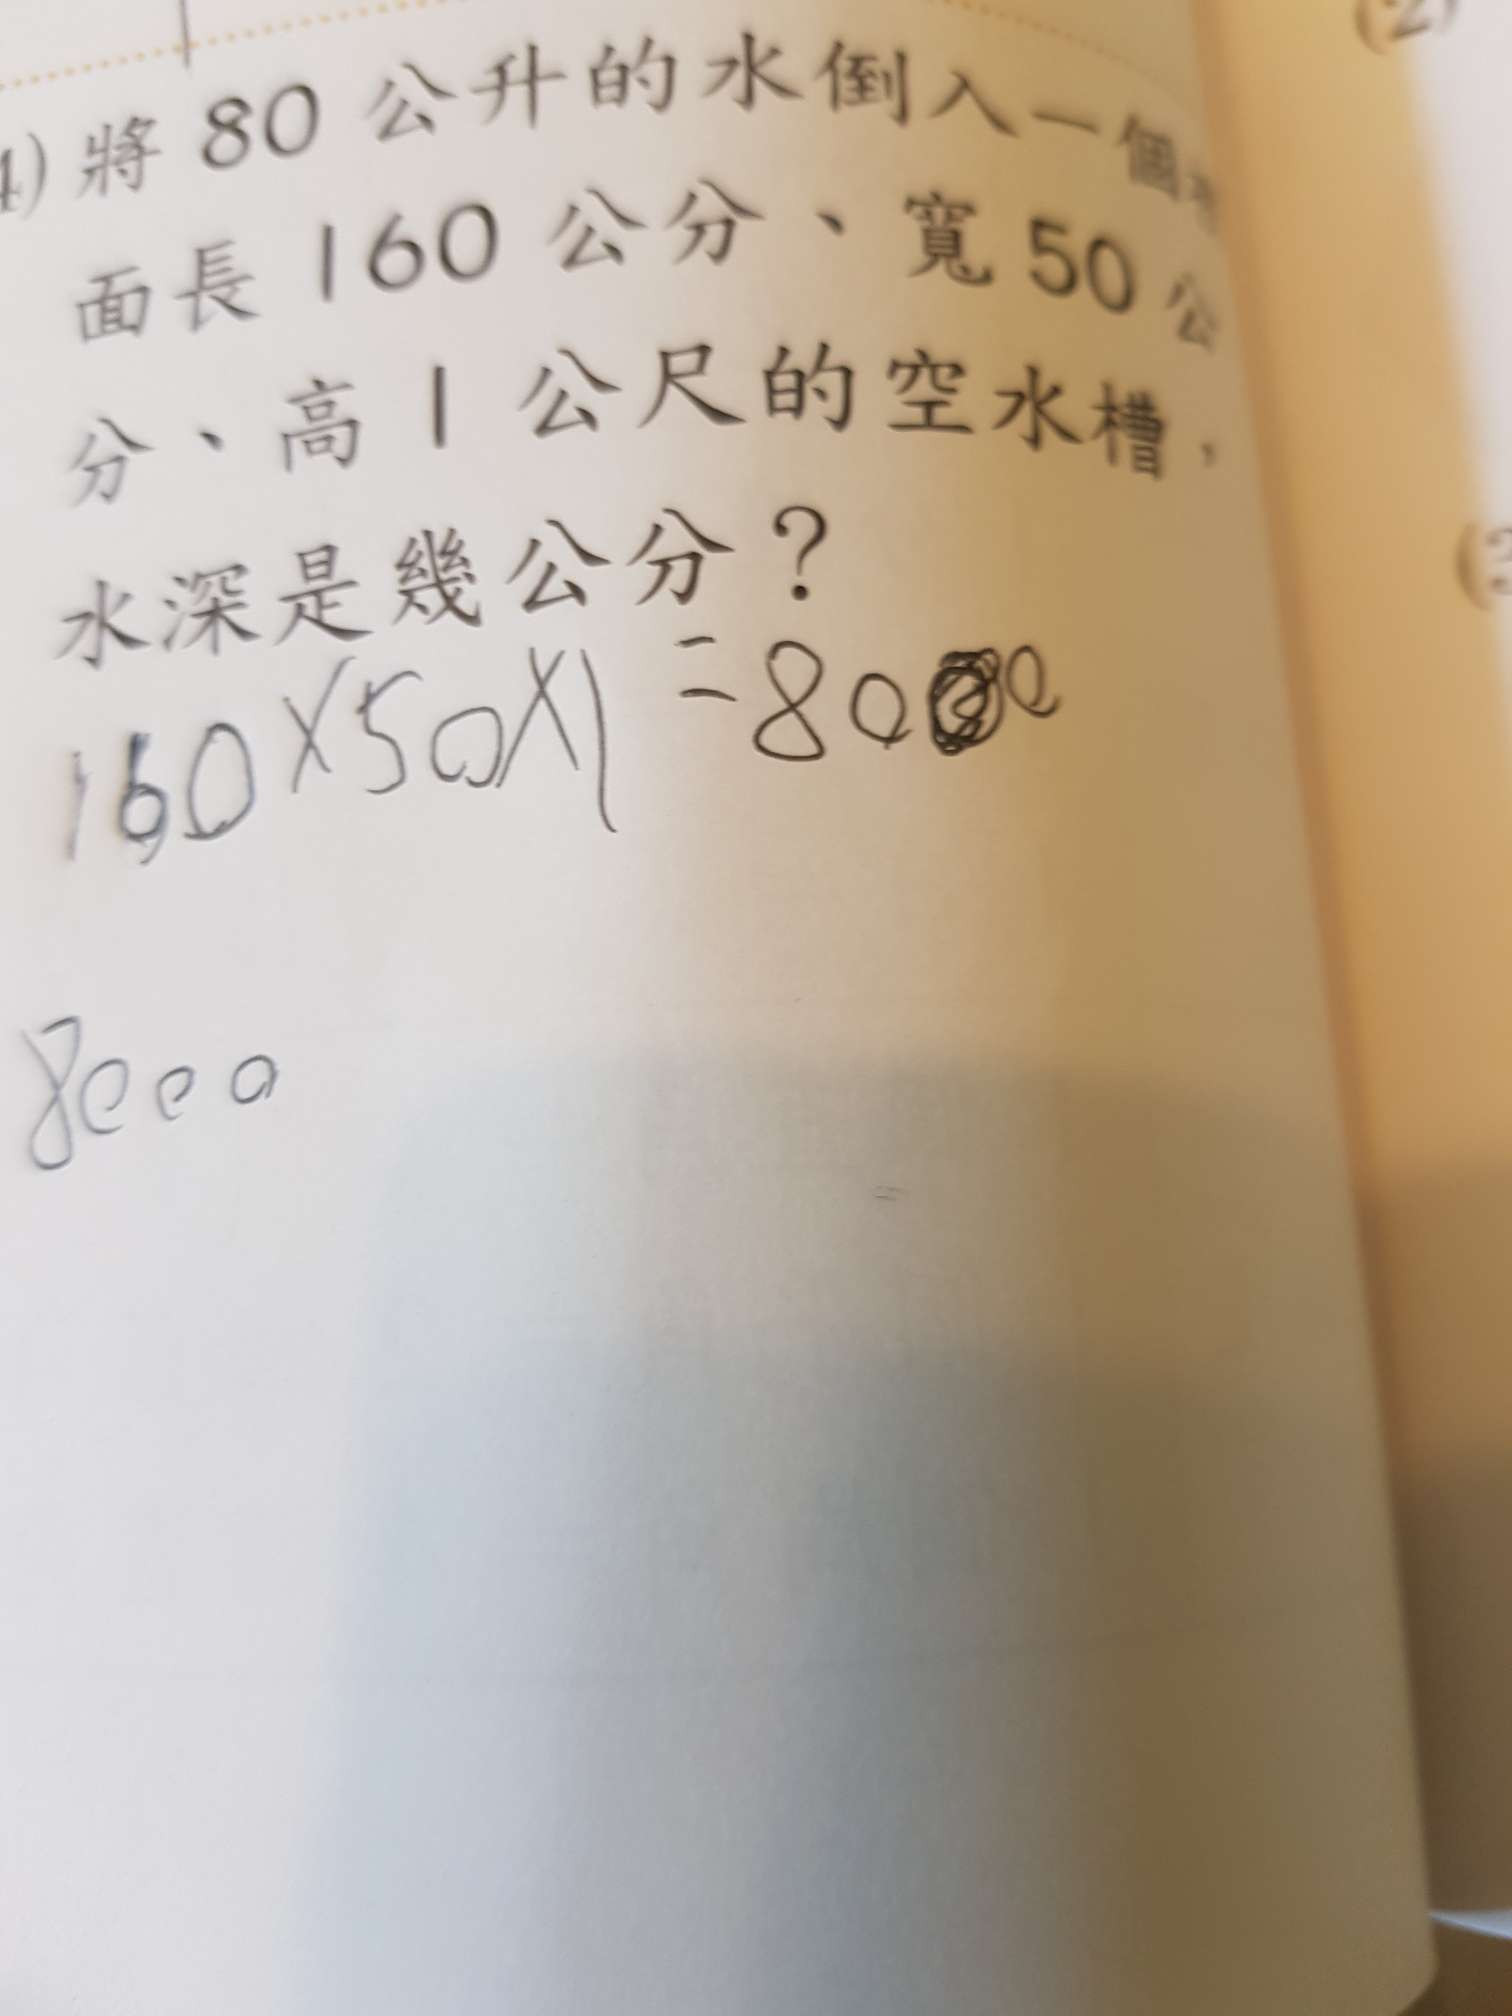 (2)
4) 將 80 公升的水倒入一個
面長 160 公分、寬 50 公
分、高 1 公尺的空水槽，
水深是幾公分？
160×50×1=8000
8000